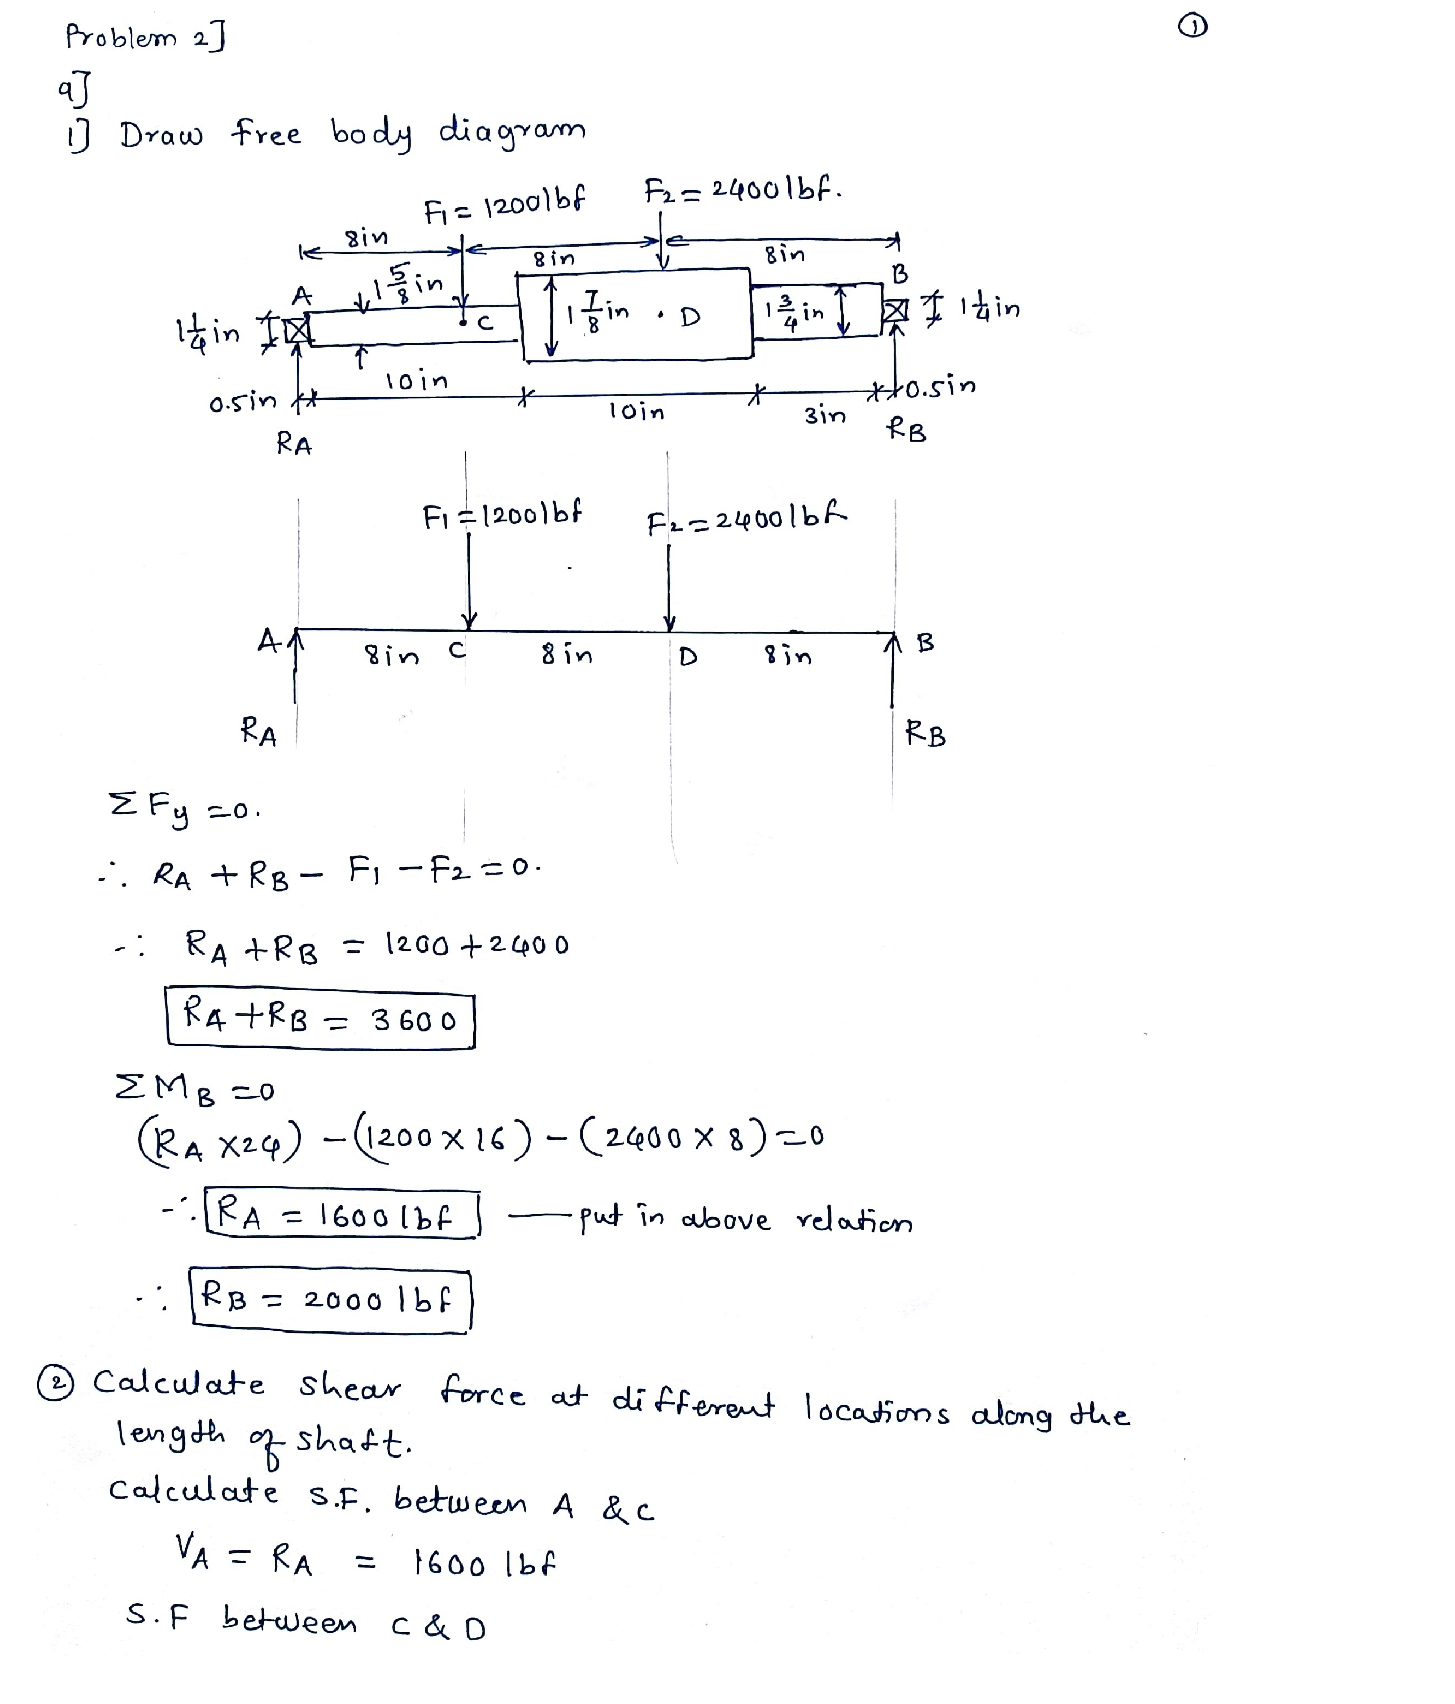 Problem 2]
①
a]
1] Draw free body diagram
F1 = 1200lbf
F2 = 2400lbf.
8in
8in
8in
A
1 5/8 in
C
1 7/8 in
. D
1 3/4 in
B
1 1/4 in
1 1/4 in
0.5in
10in
10in
3in
0.5in
RA
RB
F1 = 1200lbf
F2 = 2400lbf
A
8in
C
8in
D
8in
B
RA
RB
ΣFy = 0.
∴ RA + RB - F1 - F2 = 0.
∴ RA + RB = 1200 + 2400
RA + RB = 3600
ΣMB = 0
(RA x24) - (1200 x 16) - (2400 x 8) = 0
∴ RA = 1600 lbf — put in above relation
∴ RB = 2000 lbf
② Calculate shear force at different locations along the
length of shaft.
Calculate S.F. between A & C
VA = RA = 1600 lbf
S.F between C & D